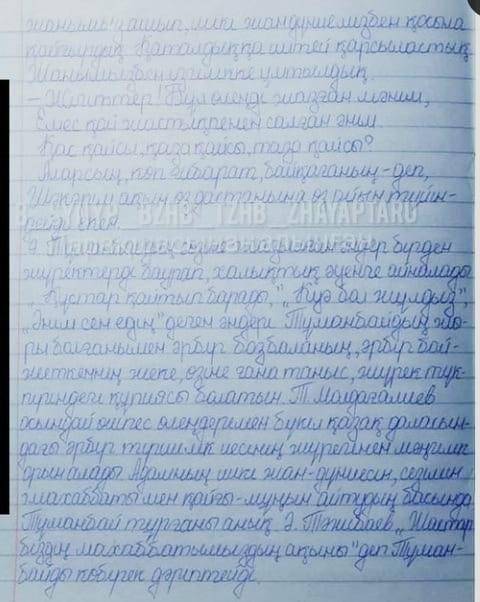 жанымыз ашып, ішкі жан дүниемізбен қосыла
қайғырдық. Қаталдыққа іштей қарсыластық.
Жанымызбен ізгілікке ұмтылдық.
– Жігіттер! Бұл өлеңді жазған мәнім,
Емес қой жастықпенен салған әнім.
Қас қайсы, қаза қайсы, таза қайсы?
Аларсың, көп ғибарат, байқағаның – деп,
Шәкәрім ақын өз дастанына өз ойын түйін-
дейді екен.
BZHB_TZHB_ZHAYAPTARU
2. Тұманбайдың сөзіне жазылған әндер бірден
жүректерді баурап, халықтық әуенге айналады
„Құстар қайтып барады," „Куә бол жұлдыз",
„Әнім сен едің" деген әндері Тұманбайдың жы-
ры болғанымен әрбір бозбаланың, әрбір бой-
жеткеннің жеке, өзіне ғана таныс, жүрек түк-
піріндегі құпиясы болатын. Т. Молдағалиев
осындай жіпес өлеңдерімен бүкіл қазақ даласын-
дағы әрбір тіршілік иесінің жүрегінен мәңгілік
орын алады. Адамның ішкі жан-дүниесін, сезімін
махаббаты мен қайғы-мұңын айтудың басында
Тұманбай тұрғаны анық. Ә. Тәжібаев „Жастар
біздің махаббатымыздың ақыны" деп Тұман-
байды көбірек дәріптейді.